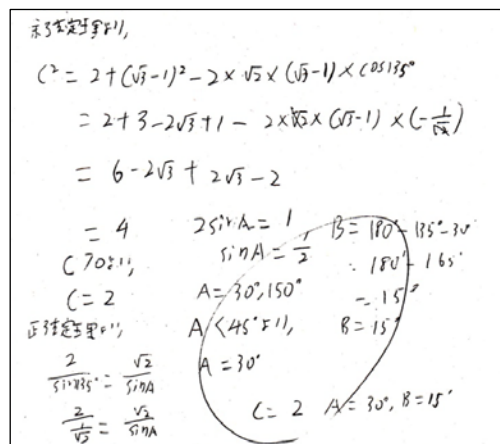 余弦定理より,
C² = 2 + (√3-1)² - 2 × √2 × (√3-1) × cos135°
= 2 + 3 - 2√3 + 1 - 2×√2 × (√3-1) × (-1/√2)
= 6 - 2√3 + 2√3 - 2
= 4
C>0より,
C = 2
正弦定理より,
2/sin135° = √2/sinA
2/(1/√2) = √2/sinA
2sinA = 1
sinA = 1/2
A = 30°, 150°
A < 45°より,
A = 30°
B = 180° - 135° - 30°
180° - 165°
= 15°
B = 15°
C = 2 A = 30°, B = 15°